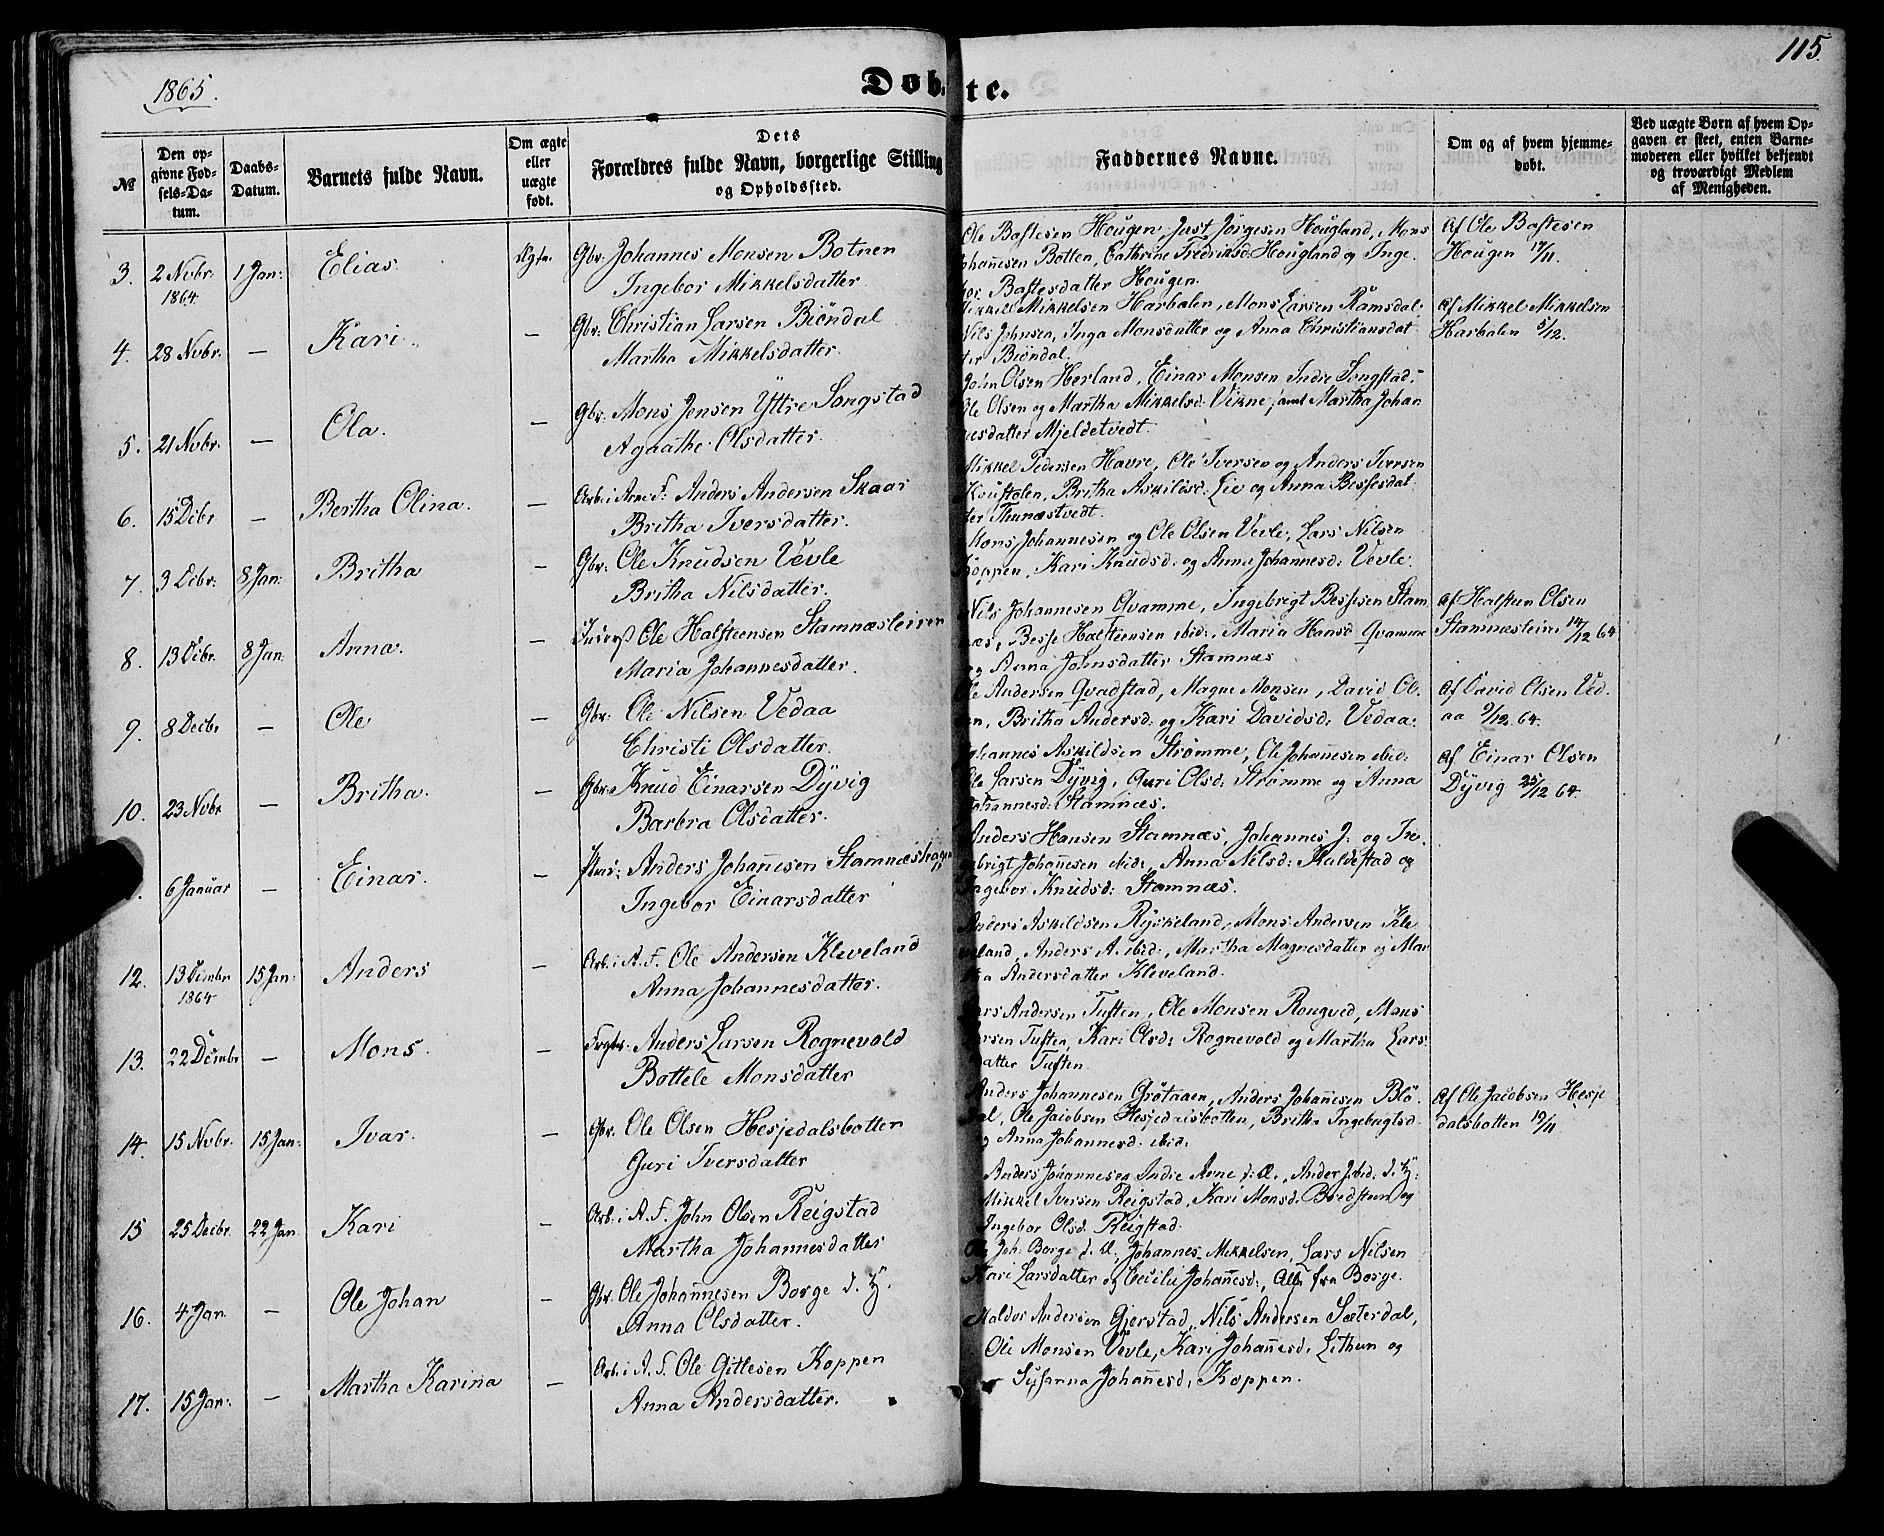 1865.
Døbte.
115.
№
Den opgivne Fødsels-Datum.
Daabs-Datum.
Barnets fulde Navn.
Om ægte eller uægte født.
Dets Forældres fulde Navn, borgerlige Stilling og Opholdssted.
Faddernes Navne.
Om og af hvem hjemmedøbt.
Ved uægte Børn af hvem Opgaven er skeet, enten Barnemoderen eller hvilket bekjendt og troværdigt Medlem af Menigheden.
3. 2 Nvbr. 1864 1 Jan: Elias. Ægte.
Gbr. Johannes Monsen Botnen
Ingebor Mikkelsdatter
Ole Baftesen Hougen, Just Jørgesen Hougland, Mons
Johan̄esen Botten, Cathrine Fredriksd: Hougland og Inge
bor Baftesdatter Hougen.
Af Ole Baftesen
Hougen 17/11
4. 28 Nvbr. — Kari. —
Gbr: Christian Larsen Biöndal
Martha Mikkelsdatter.
Mikkel Mikkelsen Harbalen, Mons Larsen Ramsdal,
Nils Johnsen, Inga Monsdatter og Anna Christiansdat
ter Biöndal.
Af Mikkel Mikkelsen
Harbalen 5/12.
5. 21 Nvbr. — Ola. —
Gbr: Mons Jensen Yttre Songstad
Agaathe Olsdatter.
John Olsen Herland, Einar Monsen Indre Songstad,
Ole Olsen og Martha Mikkelsd: Vikne, samt Martha Johan
nesdatter Mjeldetvedt.
6. 15 Dcbr — Bertha Olina. —
Arb. i Arne F: Anders Andersen Skaar
Britha Iversdatter.
Mikkel Pedersen Havre, Ole Iversen og Anders Iversen
Koustolen, Britha Askilsd: Lie og Anna Bessesdat
ter Thunæstvedt.
7. 3 Dcbr: 8 Jan: Britha —
Gbr: Ole Knudsen Vevle
Britha Nilsdatter.
Mons Johannesen og Ole Olsen Vevle, Lars Nilsen
Koppen, Kari Knudsd: og Anna Johannesd: Vevle.
8. 13 Dcbr. 8 Jan. Anna. —
Ole Halsteensen Stamnæsleiren
Maria Johannesdatter.
Nils Johannesen Qvamme, Ingebrigt Bessesen Stam
næs, Besse Halsteensen ibid:, Maria Hansd Qvamme
og Anna Johnsdatter Stamnæs
Af Halsten Olsen
Stamnæsleire 14/12 64
9. 8 Decbr — Ole —
Gbr: Ole Nilsen Vedaa
Christi Olsdatter.
Ole Andersen Qvadstad, Magne Monsen, David Ol
sen, Britha Andersd: og Kari Davidsd: Vedaa:
Af David Olsen Ved
aa 9/12 64.
10. 23 Nvbr — Britha. —
Gbr: Knud Einarsen Dÿvig
Barbra Olsdatter.
Johannes Askildsen Strømme, Ole Johan̄esen ibid:
Ole Larsen Dÿvig, Guri Olsd: Strømme og Anna
Johannesd: Stamnæs.
Af Einar Olsen
Dÿvig 25/12 64.
6 Januar — Einar. —
Anders Johan̄esen Stamnæshagen
Ingebor Einarsdatter
Anders Hansen Stamnæs, Johannes J: og In
gebrigt Johan̄esen ibid:, Anna Nilsd: Kaldestad og
Ingebor Knudsd: Stamnæs.
12. 13 Dcmbr 1864 15 Jan: Anders —
Arb. i A. F. Ole Andersen Kleveland
Anna Johannesdatter.
Anders Askildsen Ryskeland, Mons Andersen Kle
veland, Anders A. ibid:, Martha Magnesdatter og Mar
tha Andersdatter Kleveland.
13. 22 Dcmbr — Mons. —
Anders Larsen Rognevold
Bottele Monsdatter
Lars Andersen Tuften, Ole Monsen Rongved, Mons
Larsen Tuften, Kari Olsd: Rognevold og Martha Lars
datter Tuften.
14. 15 Nvbr. 15 Jan: Ivar. —
Gbr. Ole Olsen Hesjedalsbotten
Guri Iversdatter
Anders Johannesen Grötaaen, Anders Johan̄esen Blö
dal, Ole Jacobsen Hesjedalsbotten, Britha Ingebrigtsd
og Anna Johannesd. ibid:
Af Ole Jacobsen Hesje
dalsbotten 19/11
15 25 Decbr. 22 Jan Kari —
Arb. i A. F. John Olsen Reigstad
Martha Johannesdatter
Anders Johannesen Indre Arne d: Æ., Ander J. ibid. d. y:
Mikkel Iversen Reigstad, Kari Monsd: Bredsteen og
Ingebor Olsd. Reigstad.
16. 4 Jan. — Ole Johan —
Gbr. Ole Johan̄esen Borge d. y.
Anna Olsdatter.
Ole Joh: Borge d. Æ, Johannes Mikkelsen, Lars Nilsen
Kari Larsdatter og Cecilie Johan̄esd:, Alle fra Borge.
17. 15 Jan: — Martha Karina —
Arb. i A. F. Ole Gitlesen Koppen
Anna Andersdatter.
Haldor Andersen Gjerstad, Nils Andersen Sæterdal,
Ole Monsen Vevle, Kari Johan̄esd: Lethun og
Susanna Johan̄esd: Koppen.